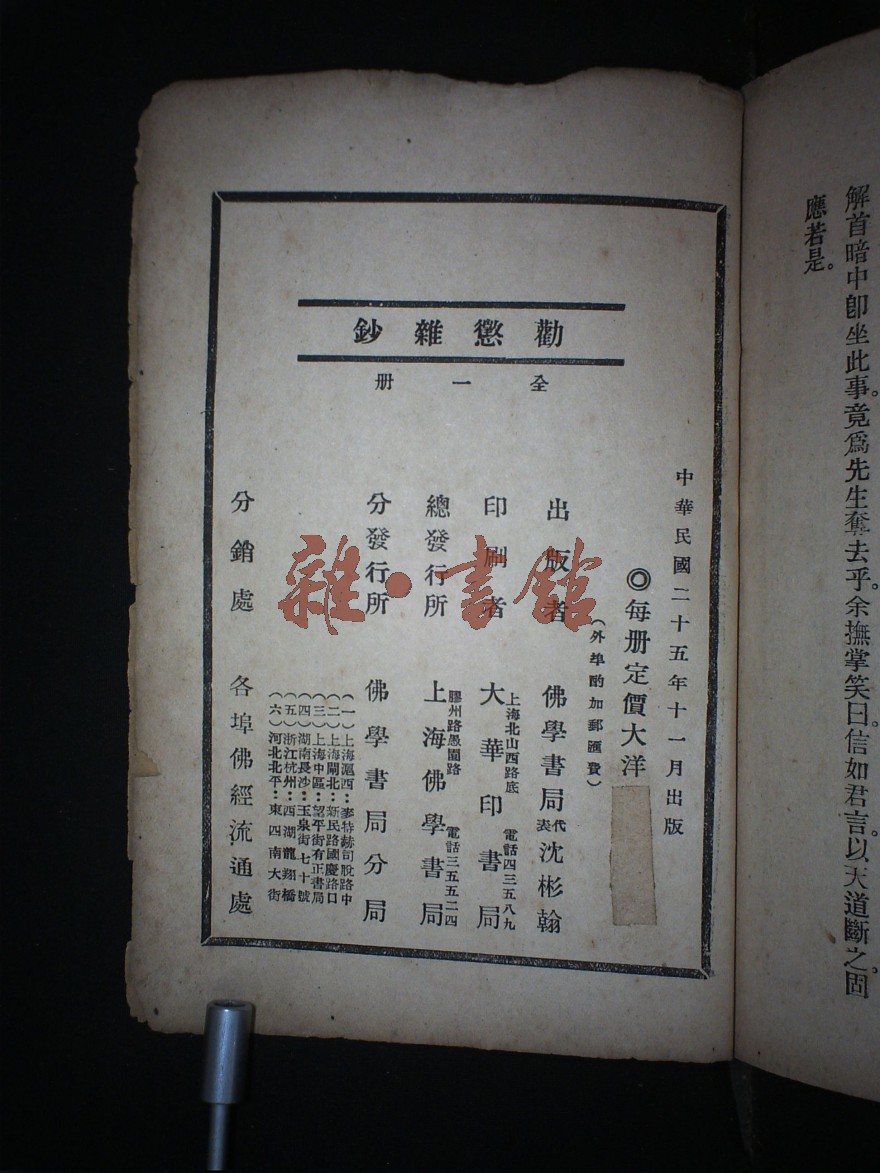 解首暗中卽坐此事。竟爲先生奪去乎。余撫掌笑曰。信如君言。以天道斷之。固
應若是。
勸懲雜鈔
全一册
中華民國二十五年十一月出版
◎每册定價大洋
（外埠酌加郵匯費）
出版者 佛學書局代表沈彬翰
印刷者 大華印書局
上海北山西路底 電話四三五八九
總發行所 上海佛學書局
膠州路愚園路 電話三五五二四
分發行所 佛學書局分局
（一）上海滬西：麥特赫司脫路中
（二）上海閘北：新民路國慶路口
（三）上海中區：望平街有正書局
（四）湖南長沙：玉泉街七十號
（五）浙江杭州：西湖龍翔橋
（六）河北北平：東四南大街
分銷處 各埠佛經流通處
雜·書館